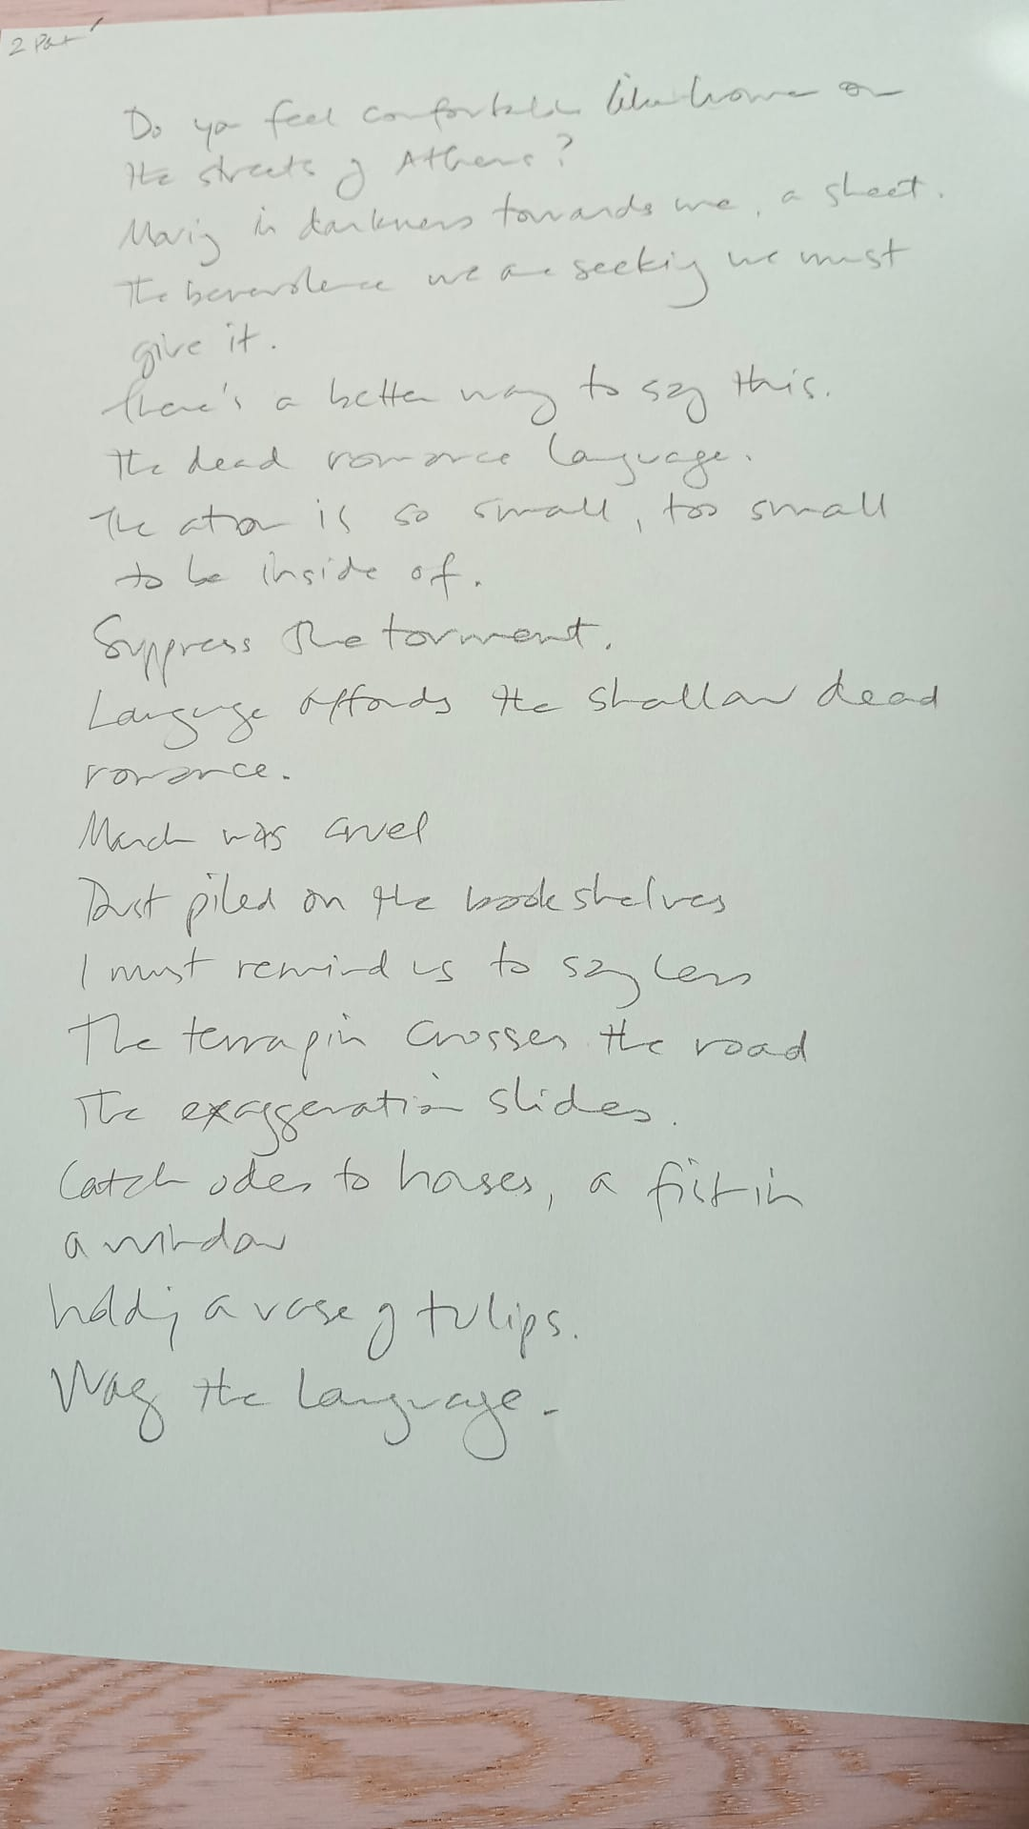 2 Par
Do you feel comfortable like home on
the streets of Athens?
Moving in darkness towards me, a sheet.
The benevolence we are seeking we must
give it.
There's a better way to say this.
The dead romance language.
The atom is so small, too small
to be inside of.
Suppress the torment.
Language affords the shallow dead
romance.
March was cruel
Dust piled on the bookshelves
I must remind us to say less
The terrapin crosses the road
The exaggeration slides.
Catch odes to houses, a fist in
a window
holding a vase of tulips.
Wag the language.